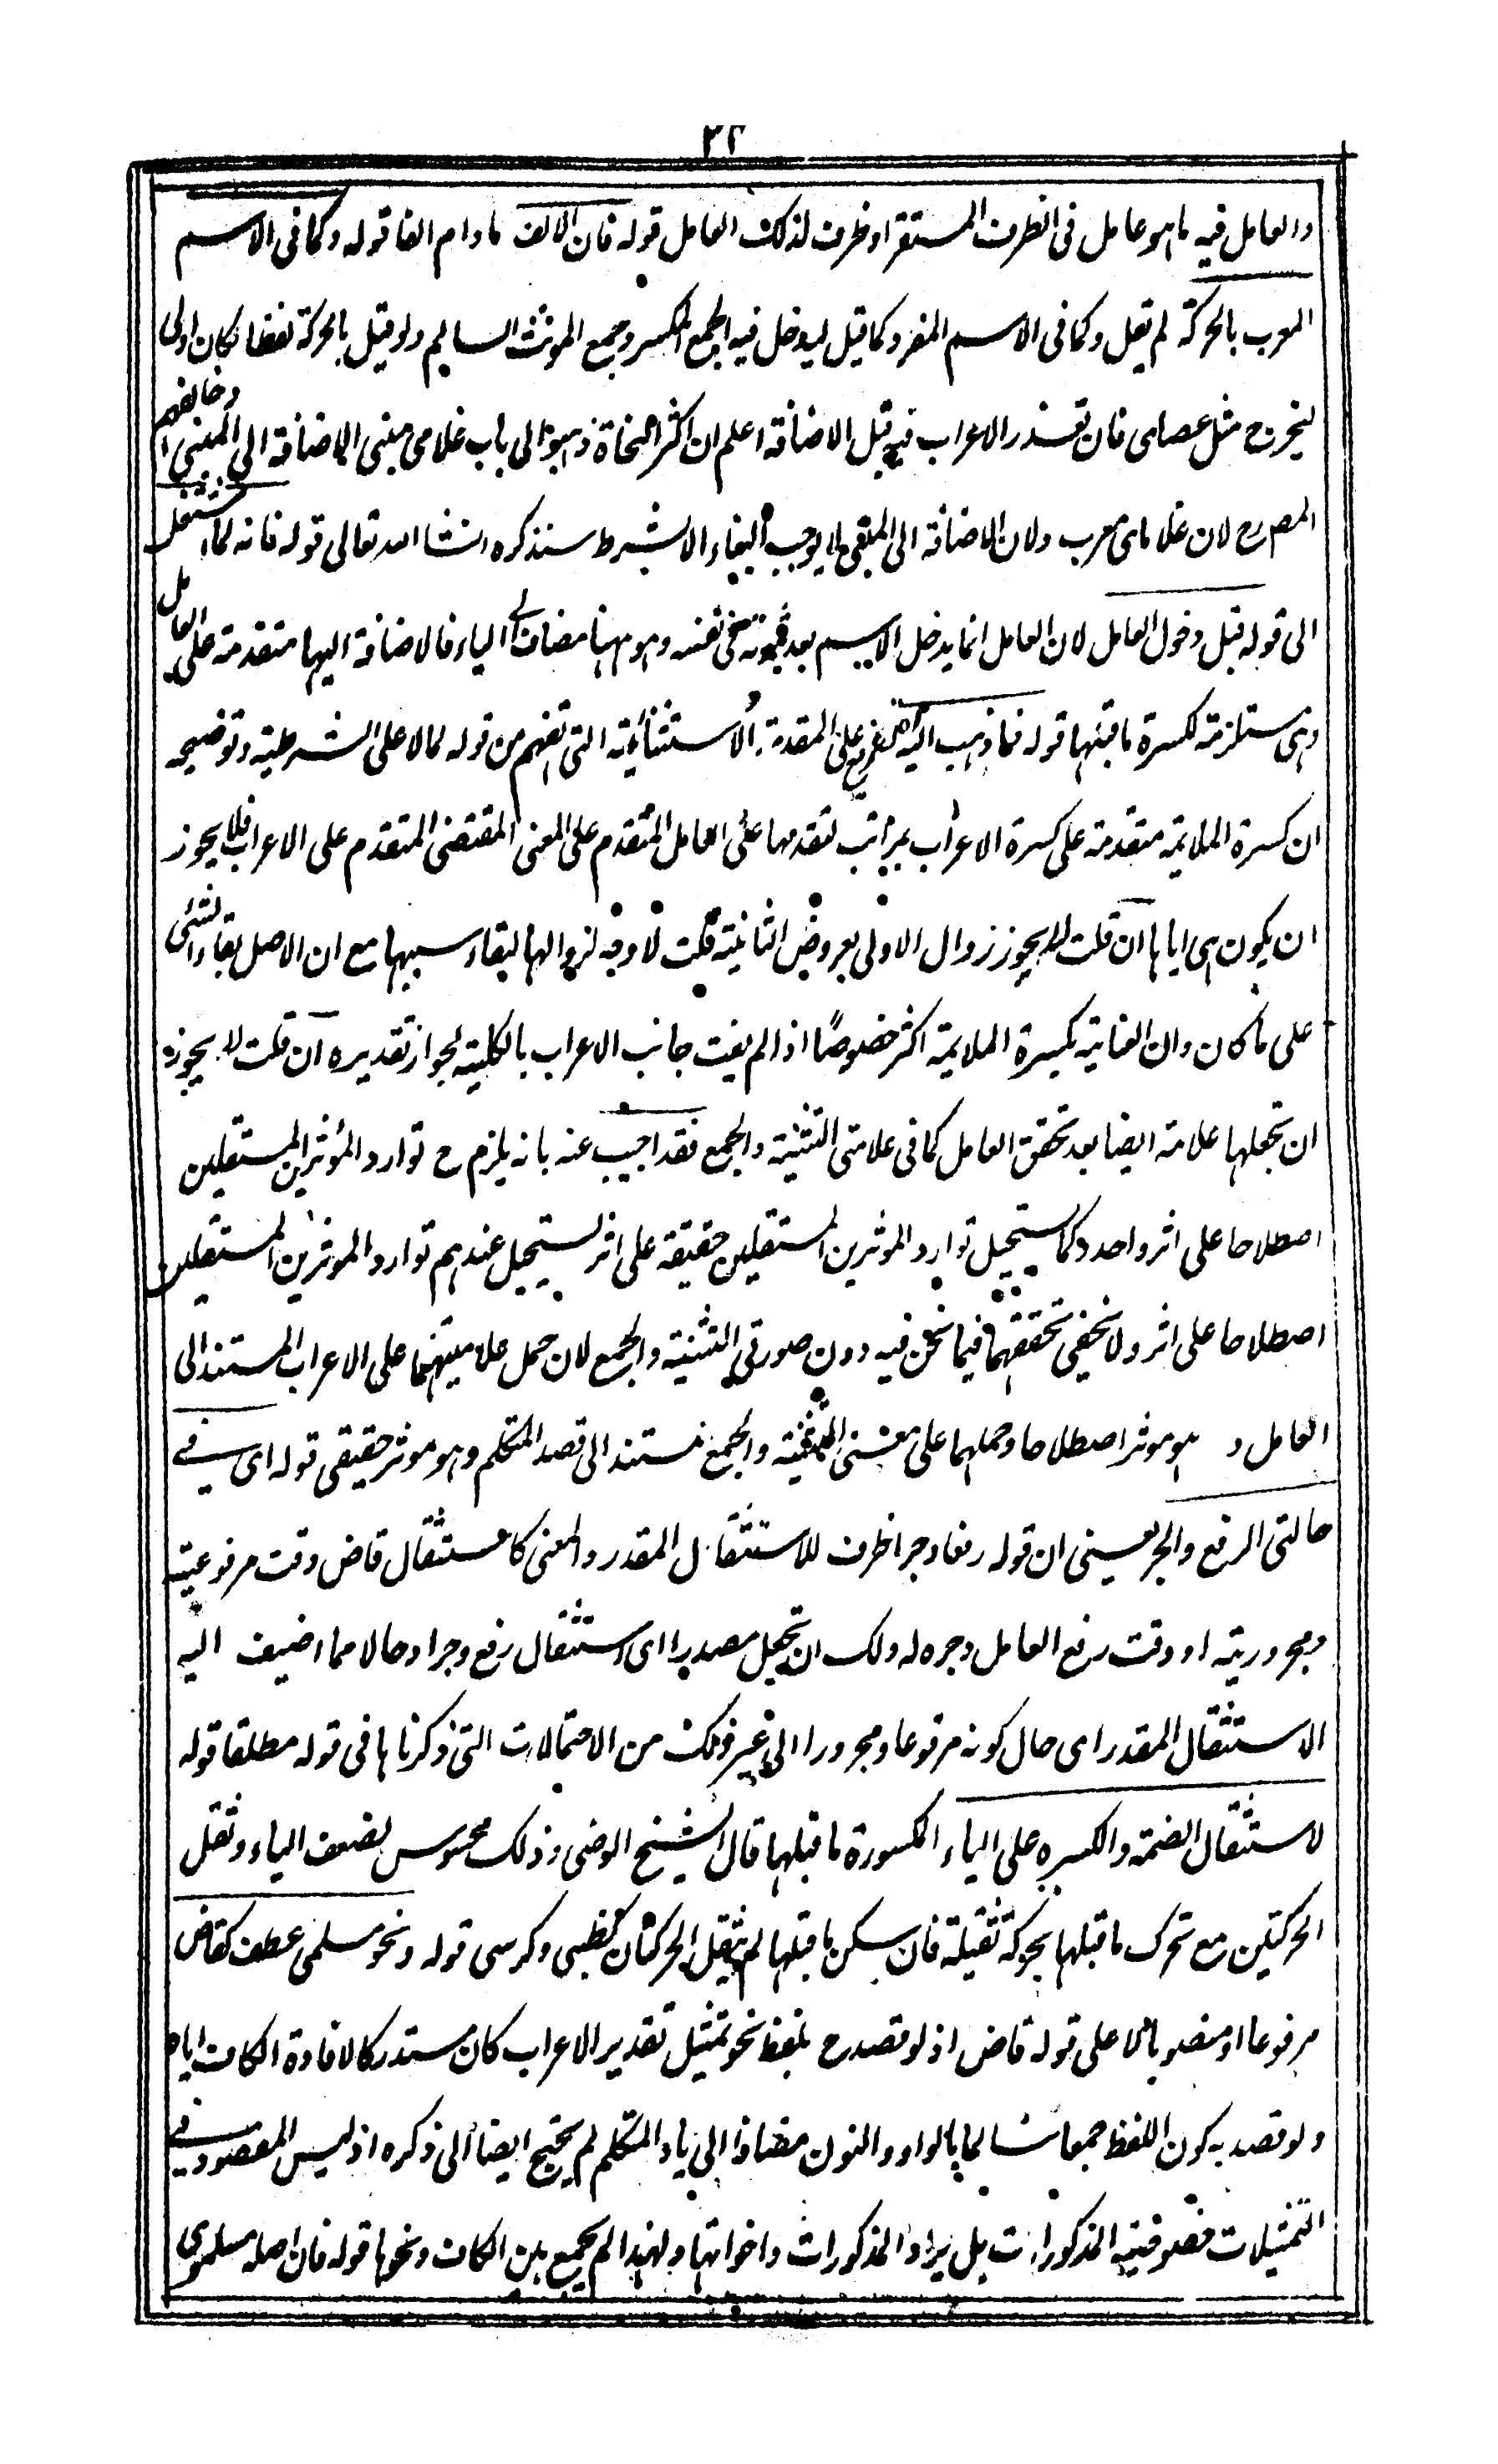 ٣٢
والعامل فيه ما هو عامل فى الظرف المستقر او ظرف لذلك العامل قوله فان الالف ما دام الفا قوله وكما فى الاسم
المعرب بالحركة لم يقل وكما فى الاسم المفرد كما قيل ليدخل فيه الجمع المكسر وجمع المونث السالم ولو قيل بالحركة لفظا لكان اولى
ليخرج مثل عصاى فان تعذر الاعراب فيه قبل الاضافة اعلم ان اكثر النحاة ذهبوا الى باب غلامى مبنى الاضافة الى المبنى وخالفهم
المص رح لان غلاماى معرب ولان الاضافة الى المبنى لا يوجب البناء الا بشرط سنذكره انشا الله تعالى قوله فانه لما اشتغل
الى قوله قبل دخول العامل لان العامل انما يدخل الاسم بعد ثبوته فى نفسه وهو ههنا مضاف الى الياء فالاضافة اليها متقدمة على العامل
وهى مستلزمة لكسرة ما قبلها قوله فما ذهب اليه تفريع على المقدمة الاستثنائية التى تفهم من قوله لما لا على الشرطية وتوضيحه
ان كسرة الملايمة متقدمة على كسرة الاعراب بمراتب لتقدمها على العامل المتقدم على المعنى المقتضى المتقدم على الاعراب فلا يجوز
ان يكون هى اياها ان قلت لم لا يجوز زوال الاولى بعروض الثانية قلت لا وجه لزوالها لبقاء سببها مع ان الاصل بقاء الشئ
على ما كان وان العناية بكسرة الملايمة اكثر خصوصًا اذا لم يفت جانب الاعراب بالكلية لجواز تقديره ان قلت لا يجوز
ان تجعلها علامة ايضا بعد تحقق العامل كما فى علامتى التثنية والجمع فقد اجيب عنه بانه يلزم ح توارد المؤثرين المستقلين
اصطلاحا على اثر واحد وكما يستحيل توارد الموثرين المستقلين حقيقة على اثر يستحيل عندهم توارد الموثرين المستقلين
اصطلاحا على اثر ولا يخفى تحققهما فيما نحن فيه دون صورتى التثنية والجمع لان حمل علامتيهما على الاعراب المستند الى
العامل و هو موثر اصطلاحا وحملهما على معنى التثنية والجمع مستند الى قصد المتكلم وهو موثر حقيقى قوله اى فى
حالتى الرفع والجر يعنى ان قوله رفعا وجرا ظرف للاستثقال المقدر والمعنى كاستثقال قاض وقت مرفوعيته
ومجروريته او وقت رفع العامل وجره له ولك ان تجعل مصدرا اى استثقال رفع وجر او حالا مما اضيف اليه
الاستثقال المقدر اى حال كونه مرفوعا ومجرورا الى غير ذلك من الاحتمالات التى ذكرناها فى قوله مطلقا قوله
لاستثقال الضمة والكسره على الياء المكسورة ما قبلها قال الشيخ الرضى وذلك محسوس لضعف الياء وثقل
الحركتين مع تحرك ما قبلها بحركة ثقيلة فان سكن ما قبلها لم يثقل الحركتان كظبى وكرسى قوله ونحو مسلمى عطف كقاض
مرفوعا او منصوبا لا على قوله قاض اذ لو قصد ح بلفظ نحو تمثيل تقدير الاعراب كان مستدركا لافادة الكاف اياه
ولو قصد به كون اللفظ جمعا سالما بالواو والنون مضافا الى ياء المتكلم لم يحتج ايضا الى ذكره اذ ليس المقصود فى
التمثيلات خصوصية المذكورات بل يراد المذكورات واخواتها ولهذا لم يجمع بين الكاف ونحوها قوله فان اصله مسلموى